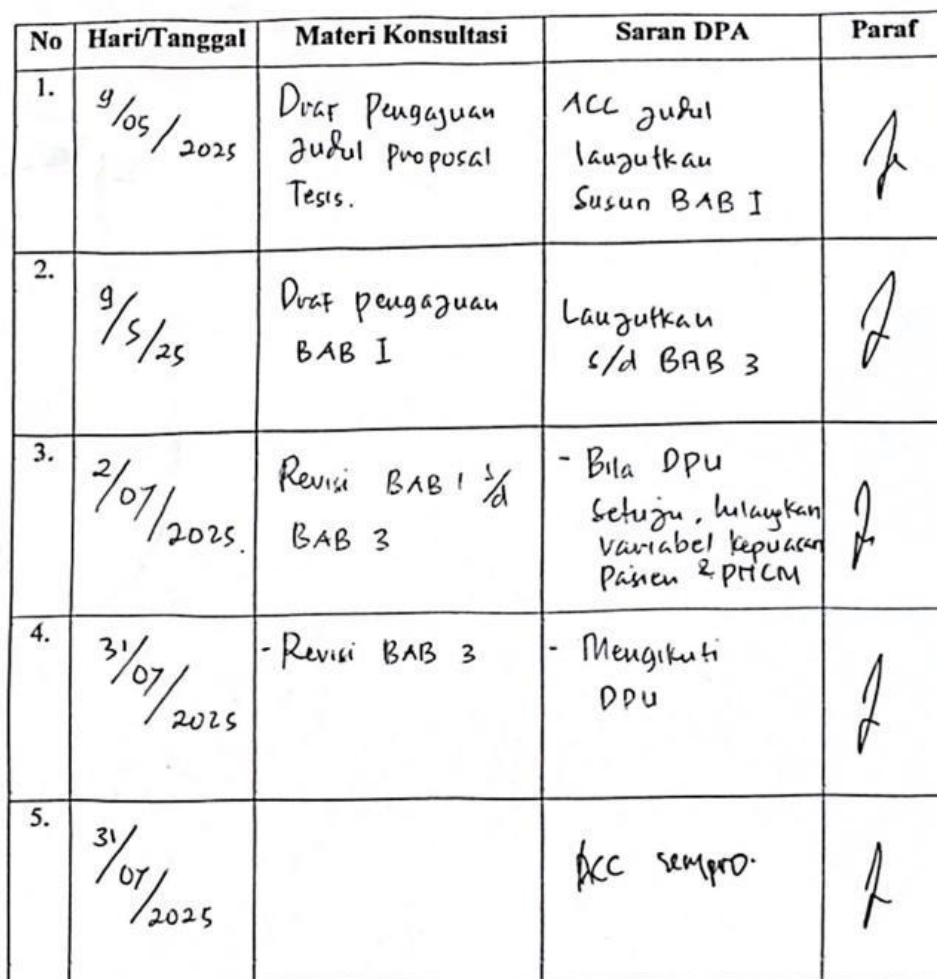 No Hari/Tanggal Materi Konsultasi Saran DPA Paraf
1. 9/05/2025
Draf Pengajuan
Judul Proposal
Tesis.
ACC Judul
lanjutkan
Susun BAB I
2. 9/5/25
Draf pengajuan
BAB I
Lanjutkan
s/d BAB 3
3. 2/07/2025.
Revisi BAB 1 s/d
BAB 3
- Bila DPU
setuju, hilangkan
variabel kepuasan
Pasien &
4. 31/07/2025
- Revisi BAB 3
- Mengikuti
DPU
5. 31/07/2025
ACC sempro.